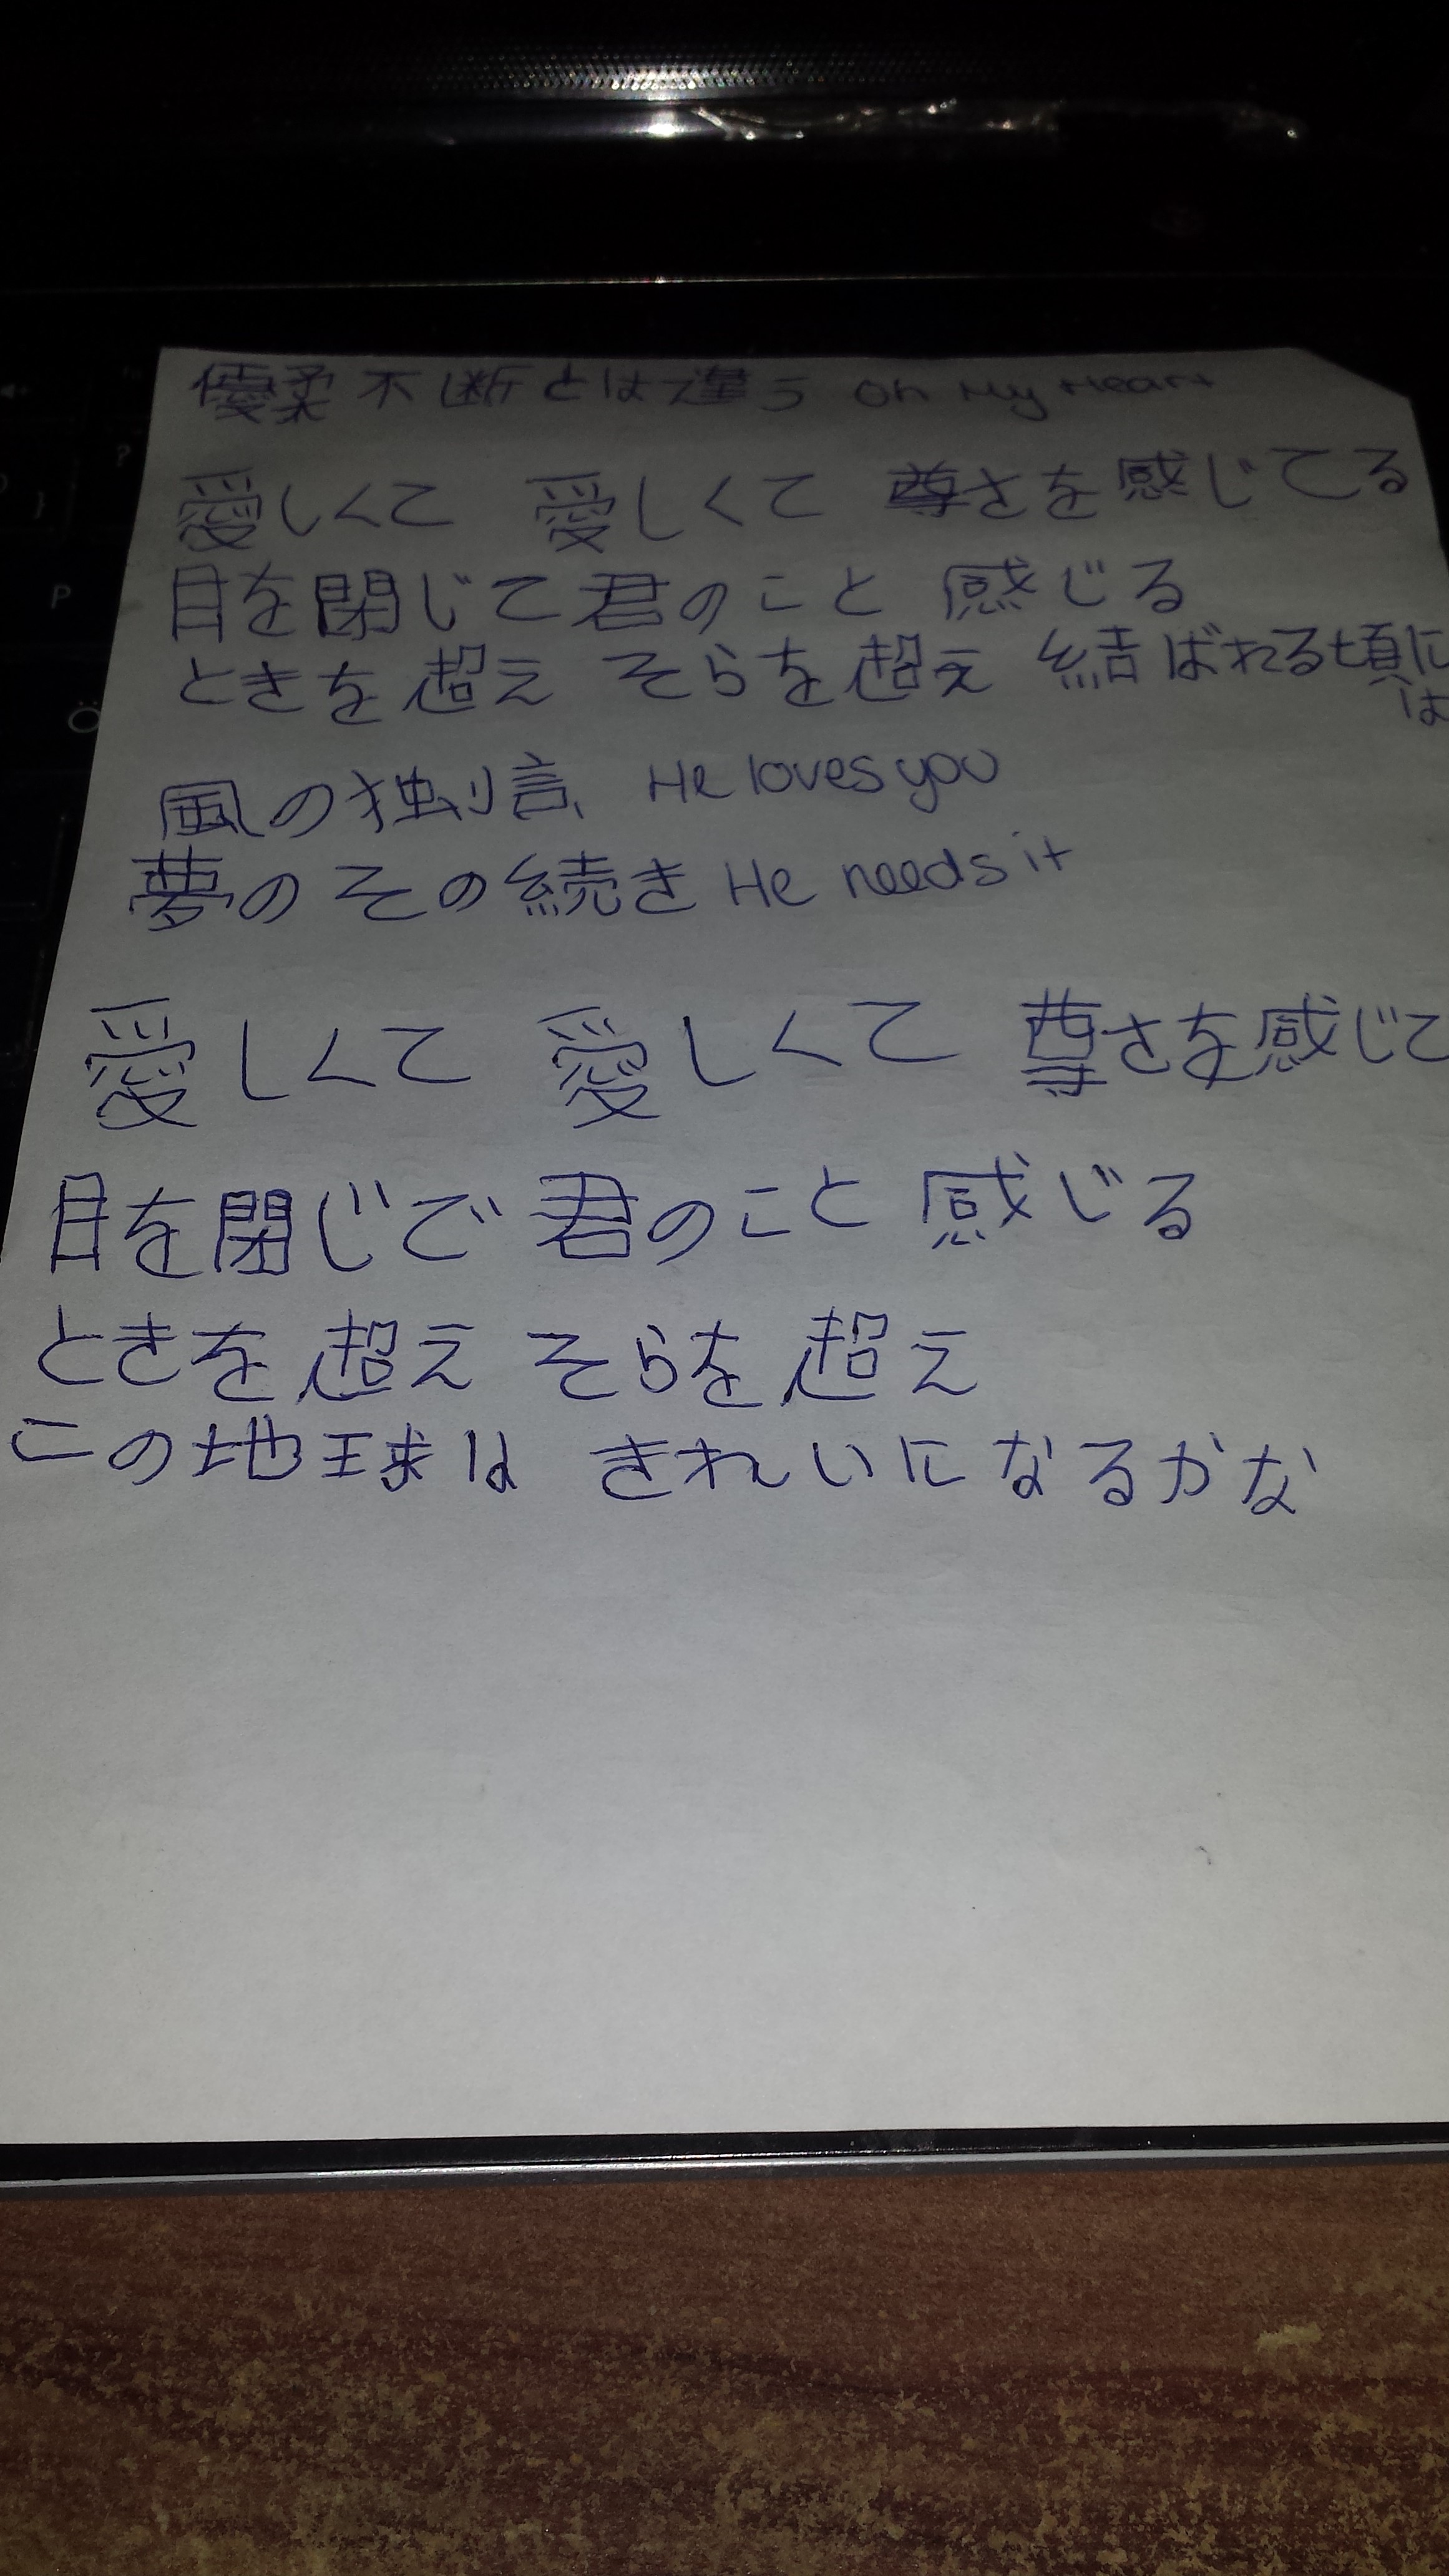 優柔不断とは違う Oh My Heart
愛しくて 愛しくて 尊さを感じてる
目を閉じて君のこと 感じる
ときを超え そらを超え 結ばれる頃に
は
風の独り言 He loves you
夢のその続き He needs it
愛しくて 愛しくて 尊さを感じて
目を閉じで君のこと 感じる
ときを超え そらを超え
この地球は きれいになるかな
P
Ö
?
}